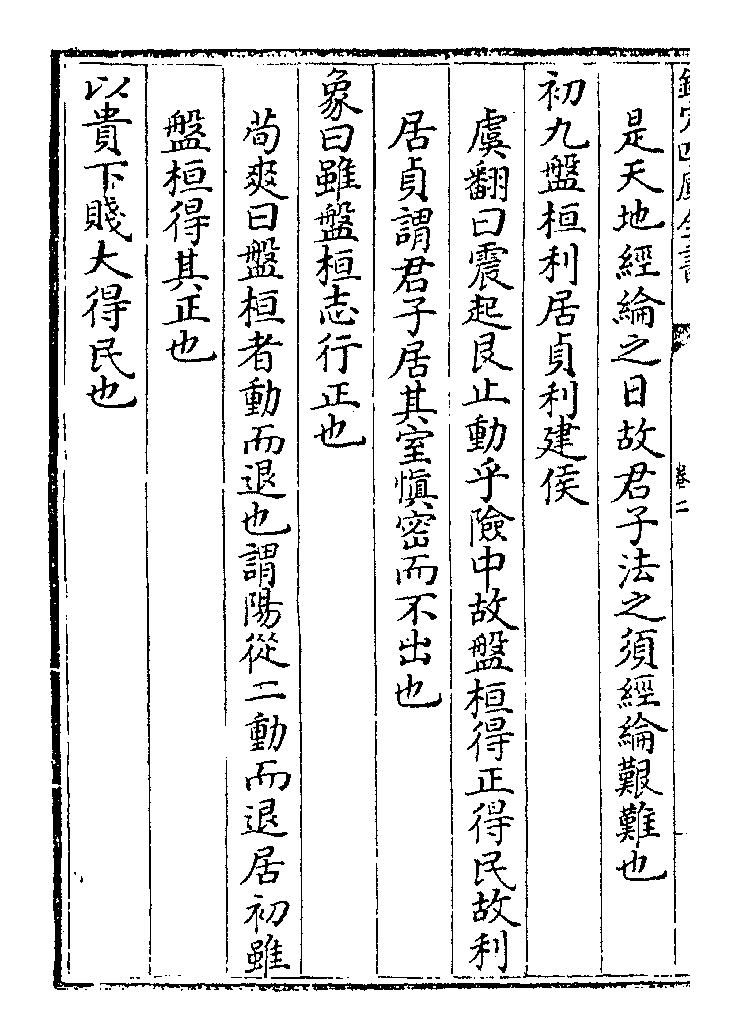 欽定四庫全書
卷二
是天地經綸之日故君子法之須經綸艱難也
初九盤桓利居貞利建侯
虞翻曰震起艮止動乎險中故盤桓得正得民故利
居貞謂君子居其室愼密而不出也
象曰雖盤桓志行正也
荀爽曰盤桓者動而退也謂陽從二動而退居初雖
盤桓得其正也
以貴下賤大得民也